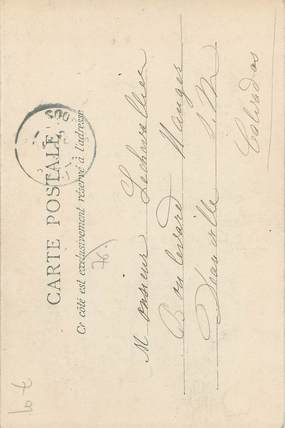 CARTE POSTALE
Ce côté est exclusivement réservé à l'adresse
76.
Monsieur Lechevallier
Boulevard Mauger
Deauville s/M
Calvados
10 €